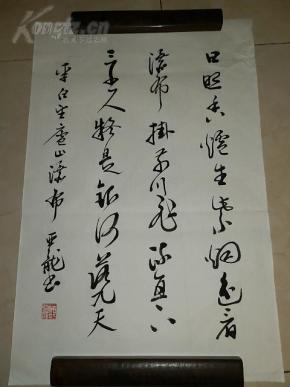 日照香炉生紫烟遥看
瀑布挂前川飞流直下
三千尺疑是银河落九天
李白望庐山瀑布 亚龙书
Kongfz.com